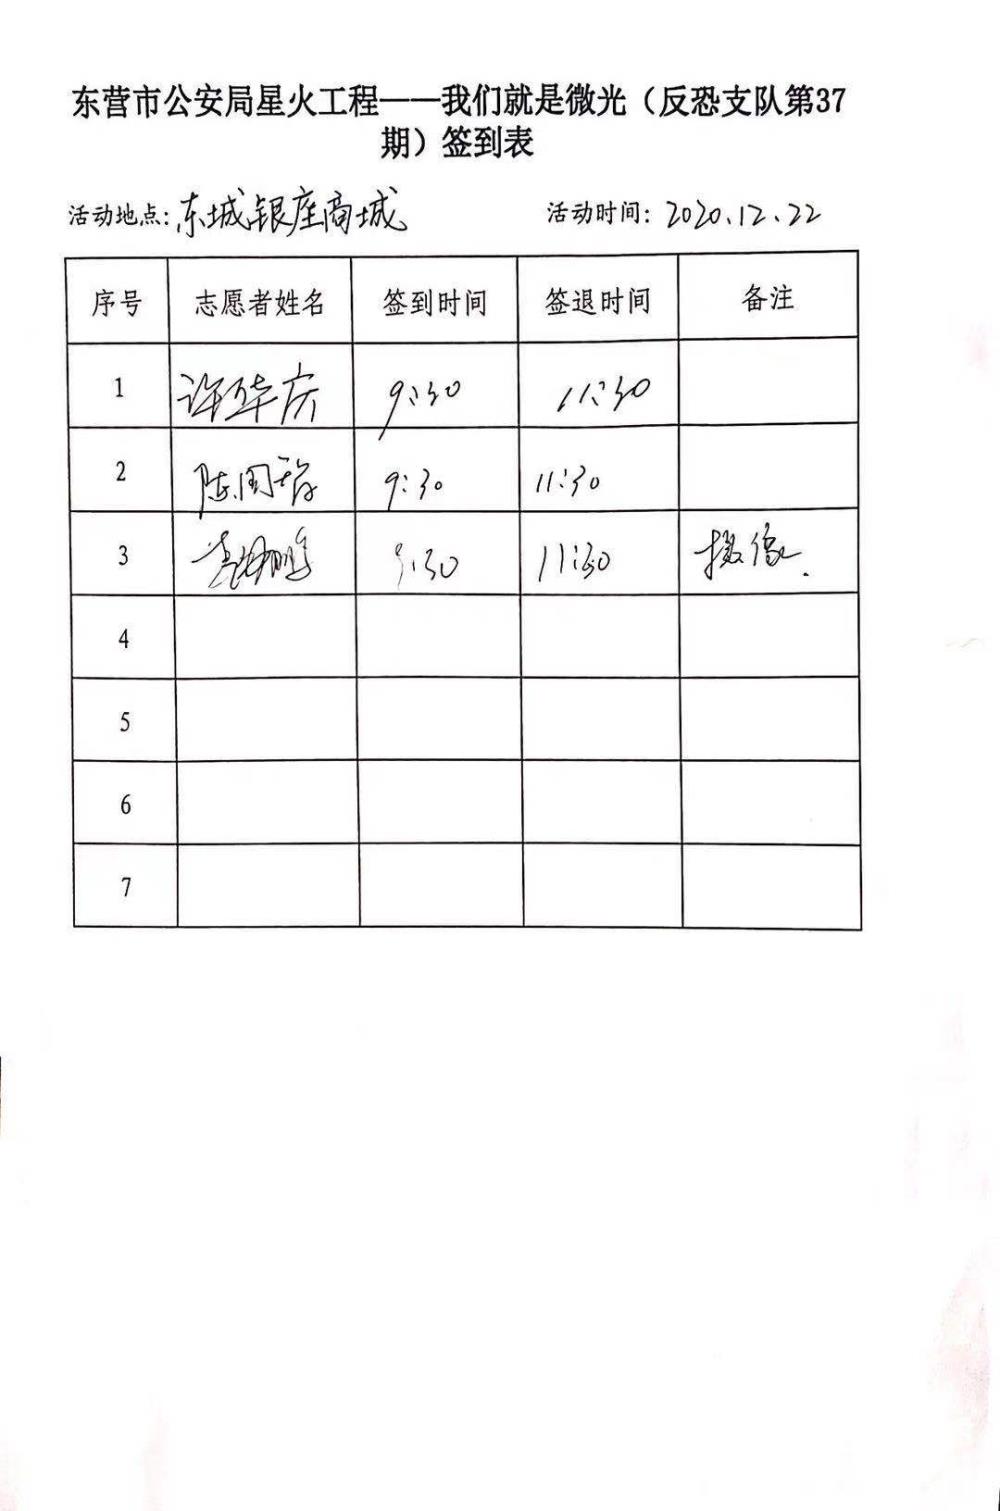 东营市公安局星火工程——我们就是微光（反恐支队第37
期）签到表
活动地点：东城银座商城 活动时间：2020.12.22
序号 志愿者姓名 签到时间 签退时间 备注
1 许华庆 9:30 11:30
2 陈国 9:30 11:30
3 鹏 9:30 11:30 摄像.
4
5
6
7